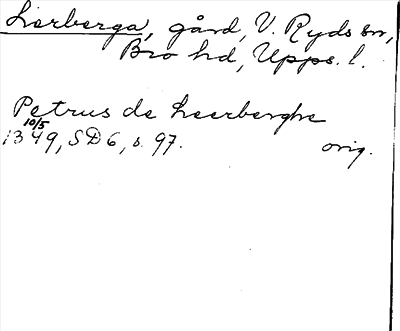 Lerberga, gård, V. Ryds sn,
Bro hd, Upps. l.
Petrus de Leerberghe
10/5
1349, SD 6, s. 97. orig.